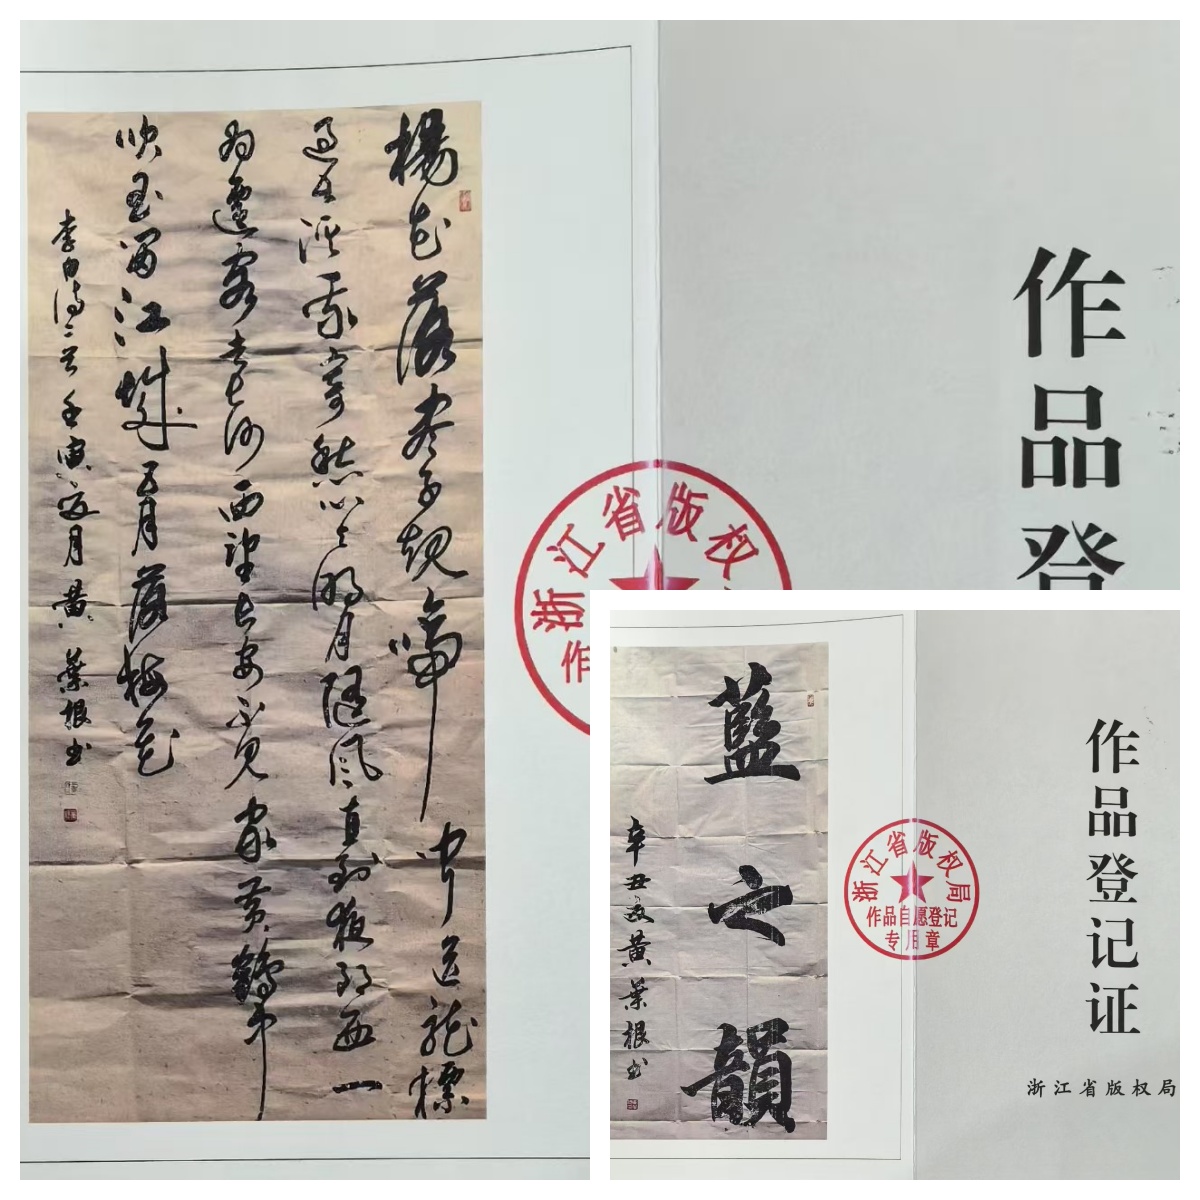 楊花落尽子規啼聞道龍標
過五溪我寄愁心与明月隨風直到夜郎西一
為遷客去長沙西望長安不見家黄鶴中
吹玉笛江城五月落梅花
李白詩二首壬寅夏月黄葉根书
浙江省版权
作
作品登
藍之韻
辛丑夏黄葉根书
浙江省版权局
作品自愿登记
专用章
作品登记证
浙江省版权局